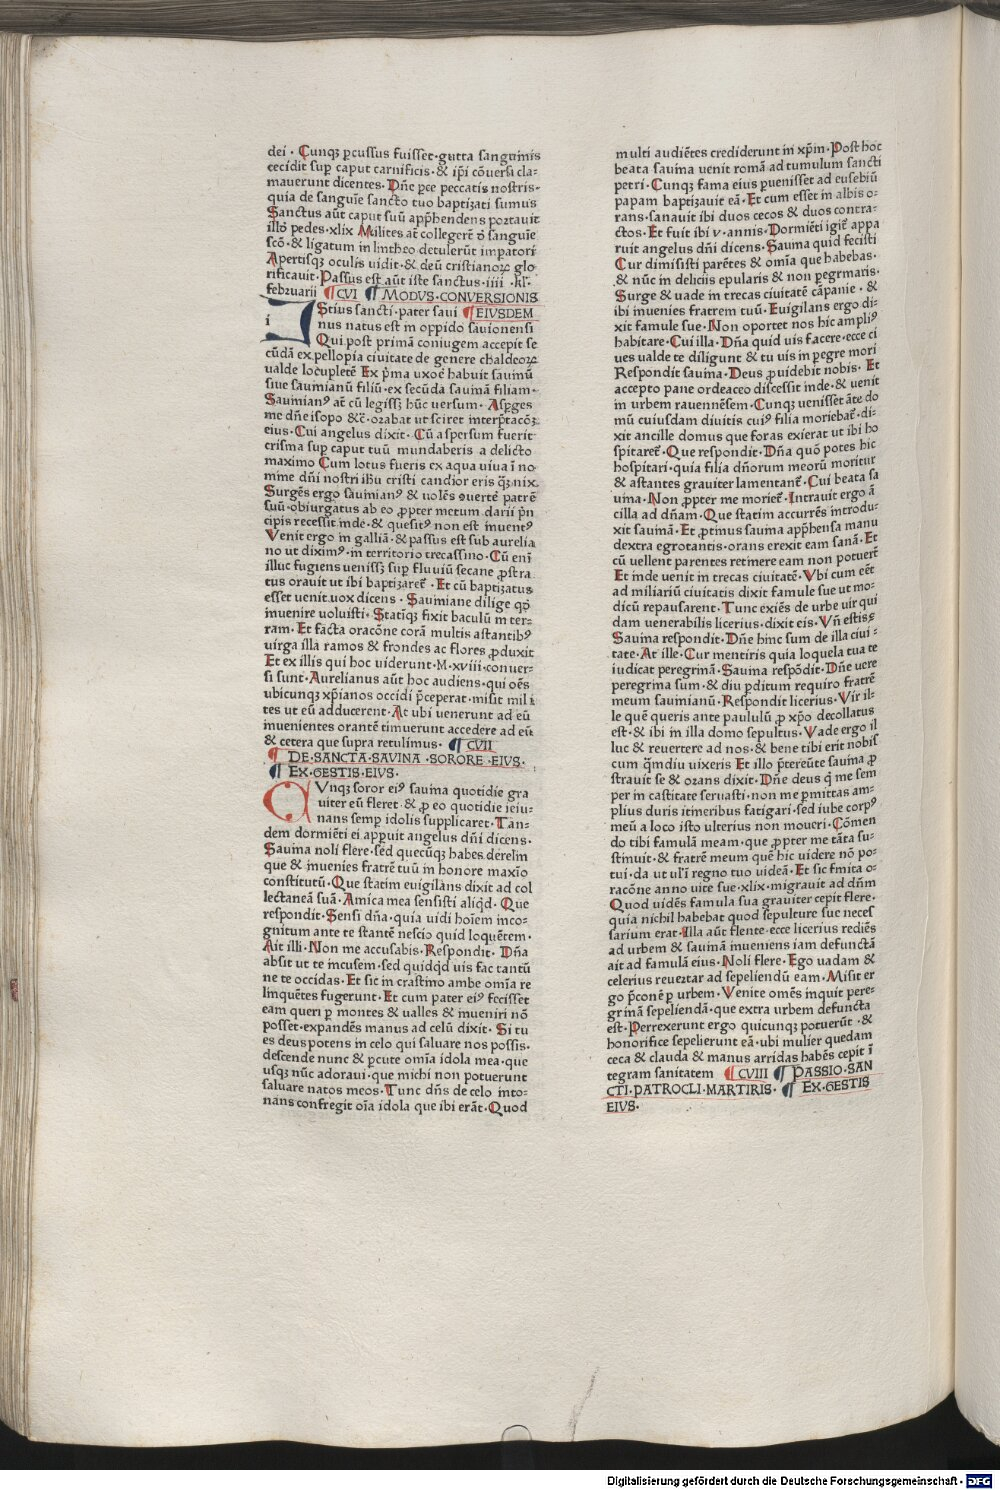 dei · Cunqꝫ ꝑcussus fuisset · gutta sanguinis
cecidit sup caput carnificis · & ip̄i cōuersi cla-
mauerunt dicentes · Dn̄e ꝑce peccatis nostris ·
quia de sanguīe sancto tuo baptizati sumus
Sanctus aūt caput suū app̄hendens portauit
illō pedes · xlix Milites at̄ collegerēt ō sanguīe
scō · & ligatum in lintheo detulerūt impatori
Apertisqꝫ oculis uidit · & deū cristianoꝝ glo-
rificauit · Passus est aūt iste sanctus · iiii · kl ·
februarii ¶ CVI ¶ MODVS · CONVERSIONIS
¶ EIVSDEM
IStius sancti · pater saui
nus natus est in oppido sauionensi
Qui post primā coniugem accepit se
cūdā ex pellopia ciuitate de genere chaldeoꝝ
ualde locupletē Ex p̄ma uxoē habuit sauinū
siue sauinianū filiū · ex secūda sauinā filiam ·
Sauinianꝰ at̄ cū legissꝫ hūc uersum · Asꝑges
me dn̄e isopo &c̄ · orabat ut sciret interp̄tacōꝫ
eius · Cui angelus dixit · Cū aspersum fuerit
crisma sup caput tuū mundaberis a delicto
maximo Cum lotus fueris ex aqua uiua ī no
mine dn̄i nostri ih̄u cristi candior eris qꝫ nix
Surgēs ergo sauinianꝰ & uolēs ꝯuertē patrē
suū · obiurgatus ab eo ꝓpter metum darii p̄n
cipis recessit inde · & quesitꝰ non est inuentꝰ
Venit ergo in galliā · & passus est sub aurelia
no ut diximꝰ · in territorio trecassino · Cū eni
illuc fugiens uenissꝫ sup fluuiū secane ꝓstra
tus orauit ut ibi baptizareť · Et cū baptizatus
esset uenit uox dicens · Sauiniane dilige qꝺ
inuenire uoluisti · Statiqꝫ fixit baculū in ter-
ram · Et facta oracōne corā multis astantibꝰ
uirga illa ramos & frondes ac flores ꝓduxit
Et ex illis qui hoc uiderunt · M · xviii · conuer-
si sunt · Aurelianus aūt hoc audiens · qui oēs
ubicunqꝫ xp̄ianos occidi p̄ceperat · misit mili
tes ut eū adducerent · At ubi uenerunt ad eū
inuenientes orantē timuerunt accedere ad eū
& cetera que supra retulimus · ¶ CVII
¶ DE · SANCTA · SAVINA · SORORE · EIVS ·
¶ EX · GESTIS · EIVS ·
CVnqꝫ soror eiꝰ sauina quotidie gra
uiter eū fleret · & ꝓ eo quotidie ieiu-
nans semp idolis supplicaret · Tan-
dem dormiēti ei appuit angelus dn̄i dicens ·
Sauina noli flere · sed quecūqꝫ habes derelin
que & inuenies fratrē tuū in honore maxīo
constitutū · Que statim euigilans dixit ad col
lectaneā suā · Amica mea sensisti aliqd · Que
respondit · Sensi dn̄a · quia uidi hoīem inco-
gnitum ante te stantē nescio quid loquētem ·
Ait illi · Non me accusabis · Respondit · Dn̄a
absit ut te incusem · sed quidqd uis fac tantū
ne te occidas · Et sic in crastino ambe omīa re
linquētes fugerunt · Et cum pater eiꝰ fecisset
eam queri ꝑ montes & ualles & inueniri nō
posset · expandēs manus ad celū dixit · Si tu
es deus potens in celo qui saluare nos possis ·
descende nunc & ꝑcute omīa idola mea · que
usqꝫ nūc adoraui · que michi non potuerunt
saluare natos meos · Tunc dn̄s de celo into-
nans confregit oīa idola que ibi erāt · Quod
multi audiētes crediderunt in xp̄m · Post hoc
beata sauina uenit romā ad tumulum sancti
petri · Cunqꝫ fama eius ꝑuenisset ad eusebiū
papam baptizauit eā · Et cum esset in albis o-
rans · sanauit ibi duos cecos & duos contra-
ctos · Et fuit ibi v · annis · Dormiēti igiť appa
ruit angelus dn̄i dicens · Sauina quid fecisti
Cur dimisisti parētes & omīa que habebas ·
& nūc in deliciis epularis & non ꝑegrinaris ·
Surge & uade in trecas ciuitatē cāpanie · &
ibi inuenies fratrem tuū · Euigilans ergo di-
xit famule sue · Non oportet nos hic ampliꝰ
habitare · Cui illa · Dn̄a quid uis facere · ecce ci
ues ualde te diligunt & tu uis in ꝑegre mori
Respondit sauina · Deus ꝓuidebit nobis · Et
accepto pane ordeaceo discessit inde · & uenit
in urbem rauennēsem · Cunqꝫ uenisset āte do
mū cuiusdam diuitis cuiꝰ filia moriebať · di-
xit ancille domus que foras exierat ut ibi ho
spitareť · Que respondit · Dn̄a quō potes hic
hospitari · quia filia dn̄orum meorū moritur
& astantes grauiter lamentanť · Cui beata sa
uina · Non ꝓpter me morieť · Intrauit ergo ā
cilla ad dn̄am · Que statim accurrēs introdu-
xit sauinā · Et ꝓtinus sauina app̄hensa manu
dextra egrotantis · orans erexit eam sanā · Et
cū uellent parentes retinere eam non potuerť
Et inde uenit in trecas ciuitatē · Vbi cum eēt
ad miliariū ciuitatis dixit famule sue ut mo-
dicū repausarent · Tunc exiēs de urbe uir qui
dam uenerabilis licerius · dixit eis · Vn̄ estis
Sauina respondit · Dn̄e hinc sum de illa ciui-
tate · At ille · Cur mentiris quia loquela tua te
iudicat peregrinā · Sauina respōdit · Dn̄e uere
peregrina sum · & diu ꝑditum requiro fratrē
meum sauinianū · Respondit licerius · Vir il-
le quē queris ante paululū ꝓ xp̄o decollatus
est · & ibi in illa domo sepultus · Vade ergo il
luc & reuertere ad nos · & bene tibi erit nobiſ
cum qm̄diu uixeris Et illo p̄tereūte sauina ꝓ
strauit se & orans dixit · Dn̄e deus q̄ me sem
per in castitate seruasti · non me ꝑmittas am-
plius duris itineribus fatigari · sed iube corpꝰ
meū a loco isto ulterius non moueri · Cōmen
do tibi famulā meam · que ꝓpter me tāta su-
stinuit · & fratrē meum quē hic uidere nō po-
tui · da ut ul̄ī regno tuo uideā · Et sic finita o-
racōne anno uite sue · xlix · migrauit ad dn̄m
Quod uidēs famula sua grauiter cepit flere ·
quia nichil habebat quod sepulture sue neces
sarium erat · Illa aūt flente · ecce licerius rediēs
ad urbem & sauinā inueniens iam defunctā
ait ad famulā eius · Noli flere · Ego uadam &
celerius reuertar ad sepeliendū eam · Misit er
go p̄conē ꝑ urbem · Venite omēs inquit pere-
grinā sepeliendā · que extra urbem defuncta
est · Perrexerunt ergo quicunqꝫ potuerūt · &
honorifice sepelierunt eā · ubi mulier quedam
ceca & clauda & manus arridas habēs cepit ī
tegram sanitatem ¶ CVIII ¶ PASSIO · SAN
CTI · PATROCLI · MARTIRIS · ¶ EX · GESTIS
EIVS ·
Digitalisierung gefördert durch die Deutsche Forschungsgemeinschaft - DFG